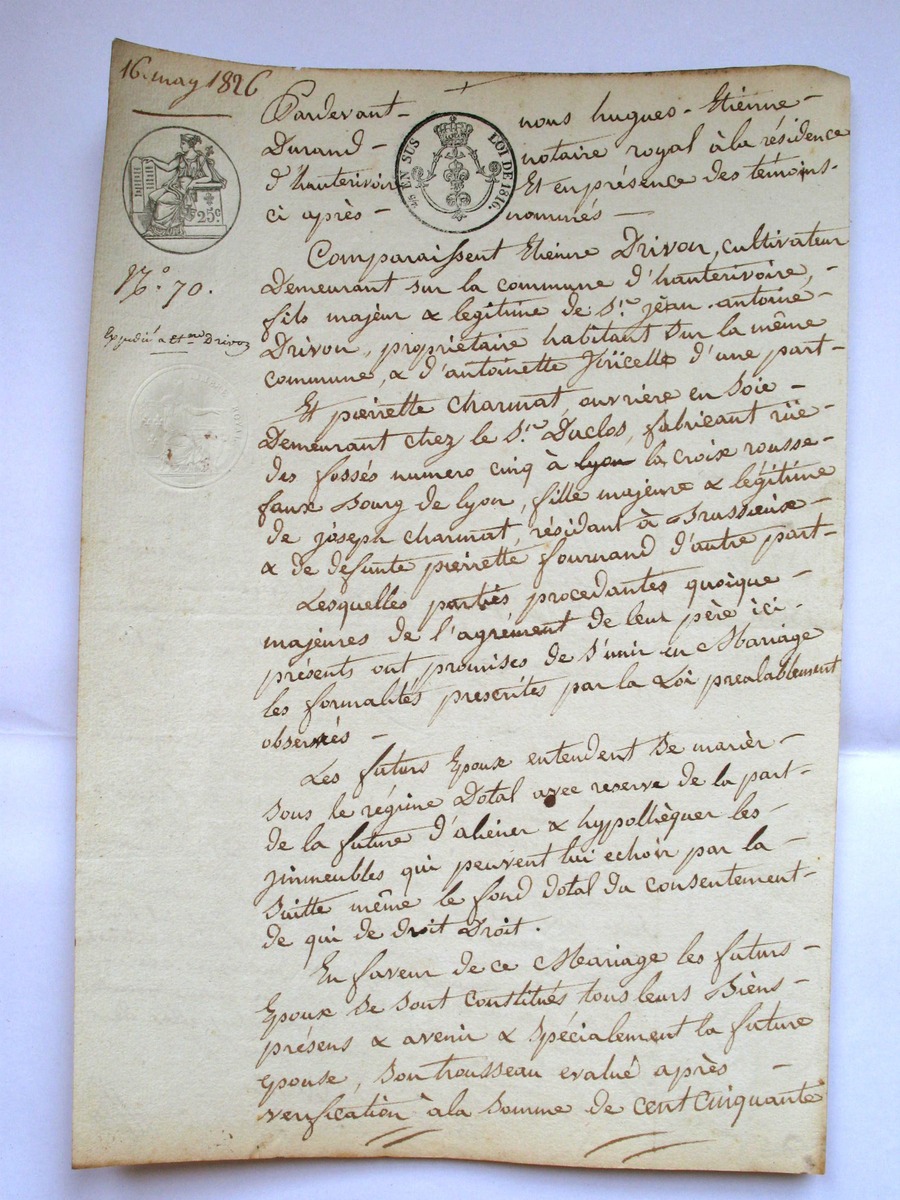 16. may 1826
Pardevant- nous hugues-Etiénne-
Durand- notaire royal à la résidence
d'hauterivoire Et en présence des témoins-
ci après- nommés-
EN SUS LOI DE 1816.
25c.
N.° 70.
Expédié a Etne Drivon
Comparaissent Etiénne Drivon, cultivateur
Demeurant sur la commune d'hauterivoire,-
fils majeur & légitime de S.r jean-antoine-
Drivon, propriétaire habitant sur la même
commune, & d'antoinette d'une part-
Et pierrette charmat, ouvrière en soie-
Demeurant chez le S.r Duclos, fabricant rüe-
des fossés numero cinq à lyon la croix rousse-
faux Bourg de lyon, fille majeure & légitime
de joseph charmat, résidant à Brussieux-
& de défunte pierrette fournand d'autre part-
Lesquelles partiès procedantes quoique-
majeures de l'agrément de leur père ici-
présents ont promises de s'unir en Mariage
les formalités prescrites par la Loi préalablement
observés-
Les futurs Epoux entendent se marièr-
sous le régime Dotal avec reserve de la part-
de la future d'aliéner & hypothèquer les-
jmmeubles qui peuvent lui echoir par la-
suitte même le fond dotal du consentement-
de qui de droit Droit.
En faveur de ce Mariage les futurs-
Epoux se sont constitués tous leurs Biéns-
présens & avenir & spécialement la future
epouse, son trousseau evalué après-
verification à la somme de cent cinquante